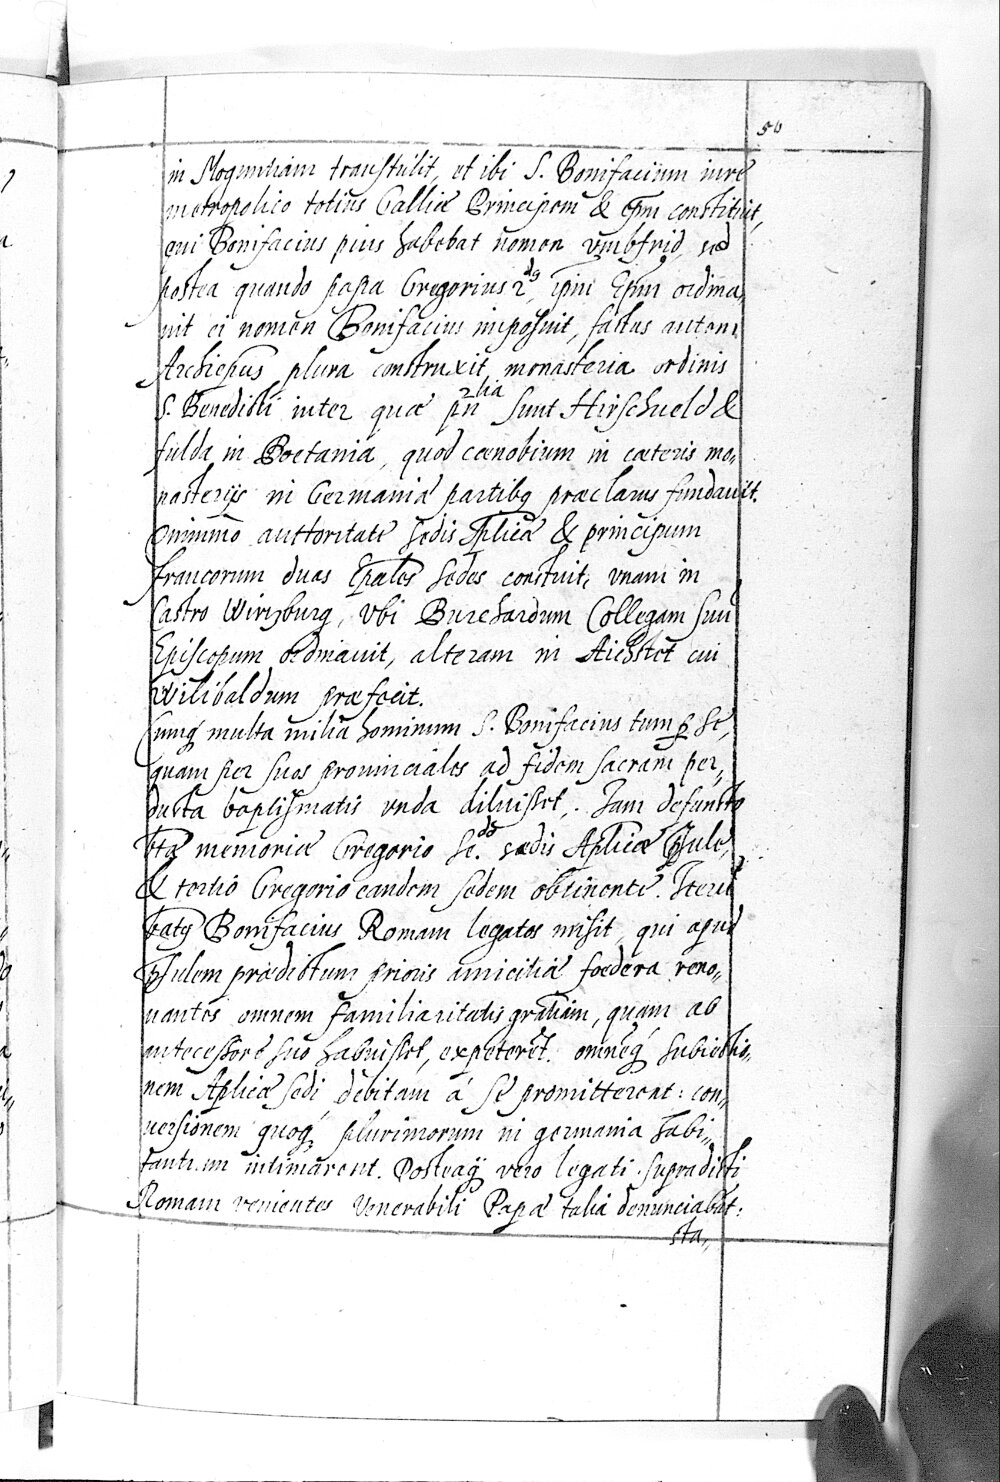 50
in Moguntiam transtulit, et ibi S. Bonifacium iure
metropolico totius Galliæ Principem & epm constituit,
qui Bonifacius prius habebat nomen vmbfrid, sed
postea quando papa Gregorius 2ds, ipm Epm ordina,
uit ei nomen Bonifacius imposuit, factus autem
Archiepus plura construxit monasteria ordinis
S. Benedicti inter quæ sunt Hirschueld &
fulda in Boetania, quod cœnobium in cæteris mo,
nasterijs in Germaniæ partibq præclarus fundauit.
authoritate sedis Aplicæ & principum
francorum duas Epales sedes constuit, vnam in
Castro Wirtzburg, vbi Burchardum Collegam suu
Episcopum ordinauit, alteram in Aichstet cui
Wilibaldum præfecit.
Cumq multa milia hominum S. Bonifacius tum p se,
quam per suos prouinciales ad fidem sacram per,
ducta baptismatis unda diluisset, Iam defuncto
btæ memoriæ Gregorio Se.do sædis Aplicæ psule,
& tertio Gregorio eandem sedem obtinente. Iteru
batq Bonifacius Romam legatos misit, qui apud
psulem prædictum prioris amicitiæ fœdera reno,
uantes omnem familiaritatis gratiam, quam ab
antecessore suo habuisset, expeteret. omneq subiectio,
nem Aplicæ sedi debitam á se promitterent: con,
uersionem quoq plurimorum in germania habi,
tantium intimarent. Posteaq vero legati supradicti
Romam venientes Venerabili Papæ talia denunciabat:
sta,